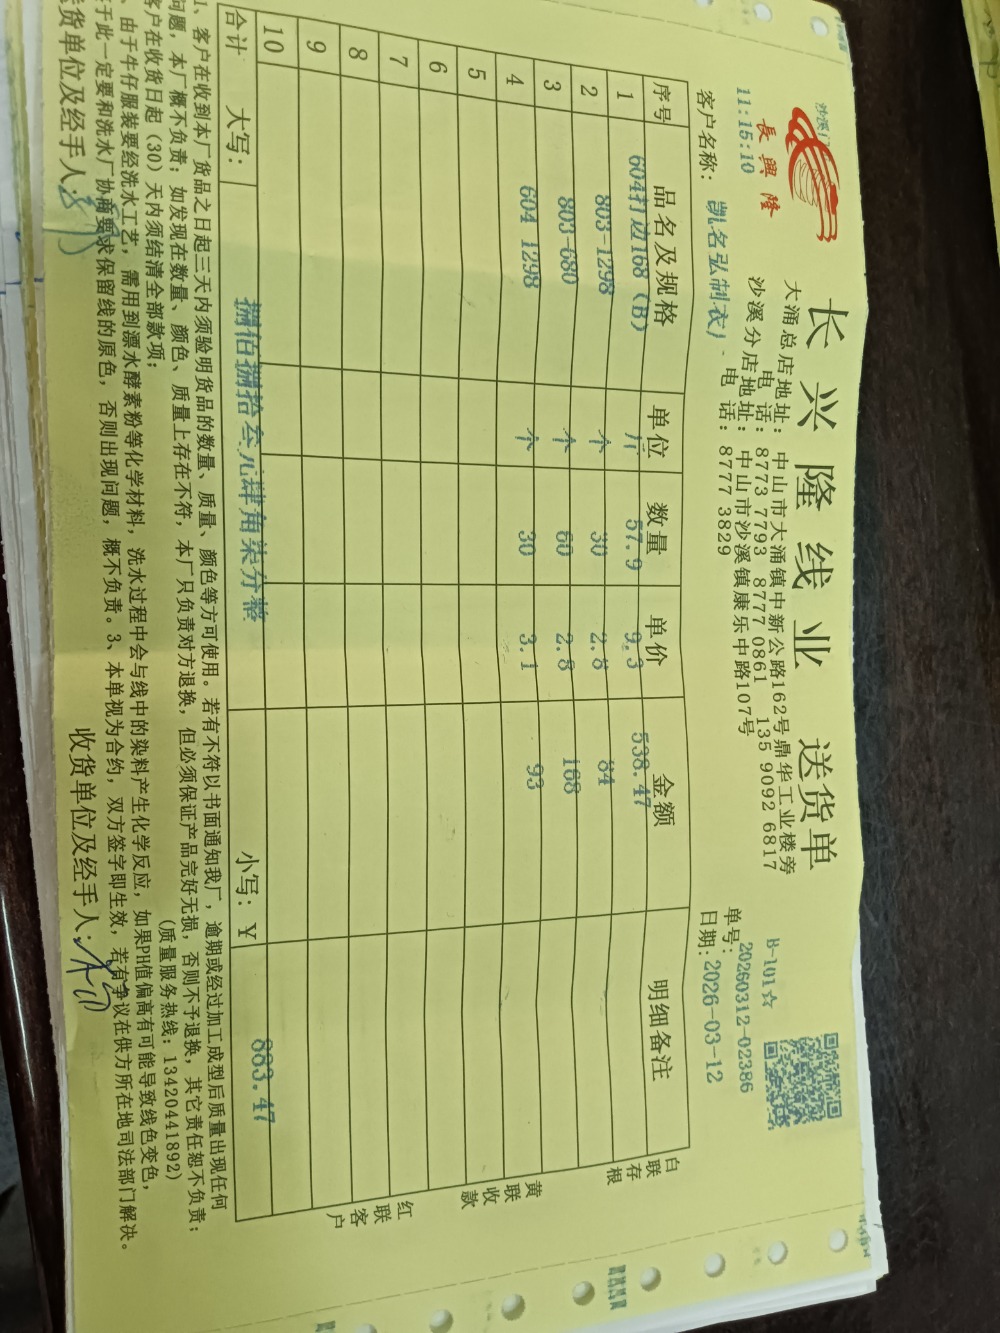 沙溪门
長興隆
长兴隆线业 送货单
大涌总店地址：中山市大涌镇中新公路162号鼎华工业楼旁
电话：8773 7793 8777 0861 135 9092 6817
沙溪分店地址：中山市沙溪镇康乐中路107号
电话：8777 3829
B-101☆
11:15:10
单号：20260312-02386
客户名称：凯名弘制衣厂
日期：2026-03-12
序号 品名及规格 单位 数量 单价 金额 明细备注
1 604打边168（B） 斤 57.9 9.3 538.47
2 803-1298 个 30 2.8 84
3 803-680 个 60 2.8 168
4 604 1298 个 30 3.1 93
5
6
7
8
9
10
合计 大写：捌佰捌拾叁元肆角柒分整 小写：￥ 883.47
白联存根
黄联收款
红联客户
1、客户在收到本厂货品之日起三天内须验明货品的数量、质量、颜色等方可使用。若有不符以书面通知我厂，逾期或经过加工成型后质量出现任何
问题，本厂概不负责；如发现在数量、颜色、质量上存在不符，本厂只负责对方退换，但必须保证产品完好无损，否则不予退换，其它责任恕不负责；
客户在收货日起（30）天内须结清全部款项； （质量服务热线：13420441892）
、由于牛仔服装要经洗水工艺，需用到漂水酵素粉等化学材料，洗水过程中会与线中的染料产生化学反应，如果PH值偏高有可能导致线色变色，
于此一定要和洗水厂协商要求保留线的原色，否则出现问题，概不负责。3、本单视为合约，双方签字即生效，若有争议在供方所在地司法部门解决。
货单位及经手人： 收货单位及经手人：